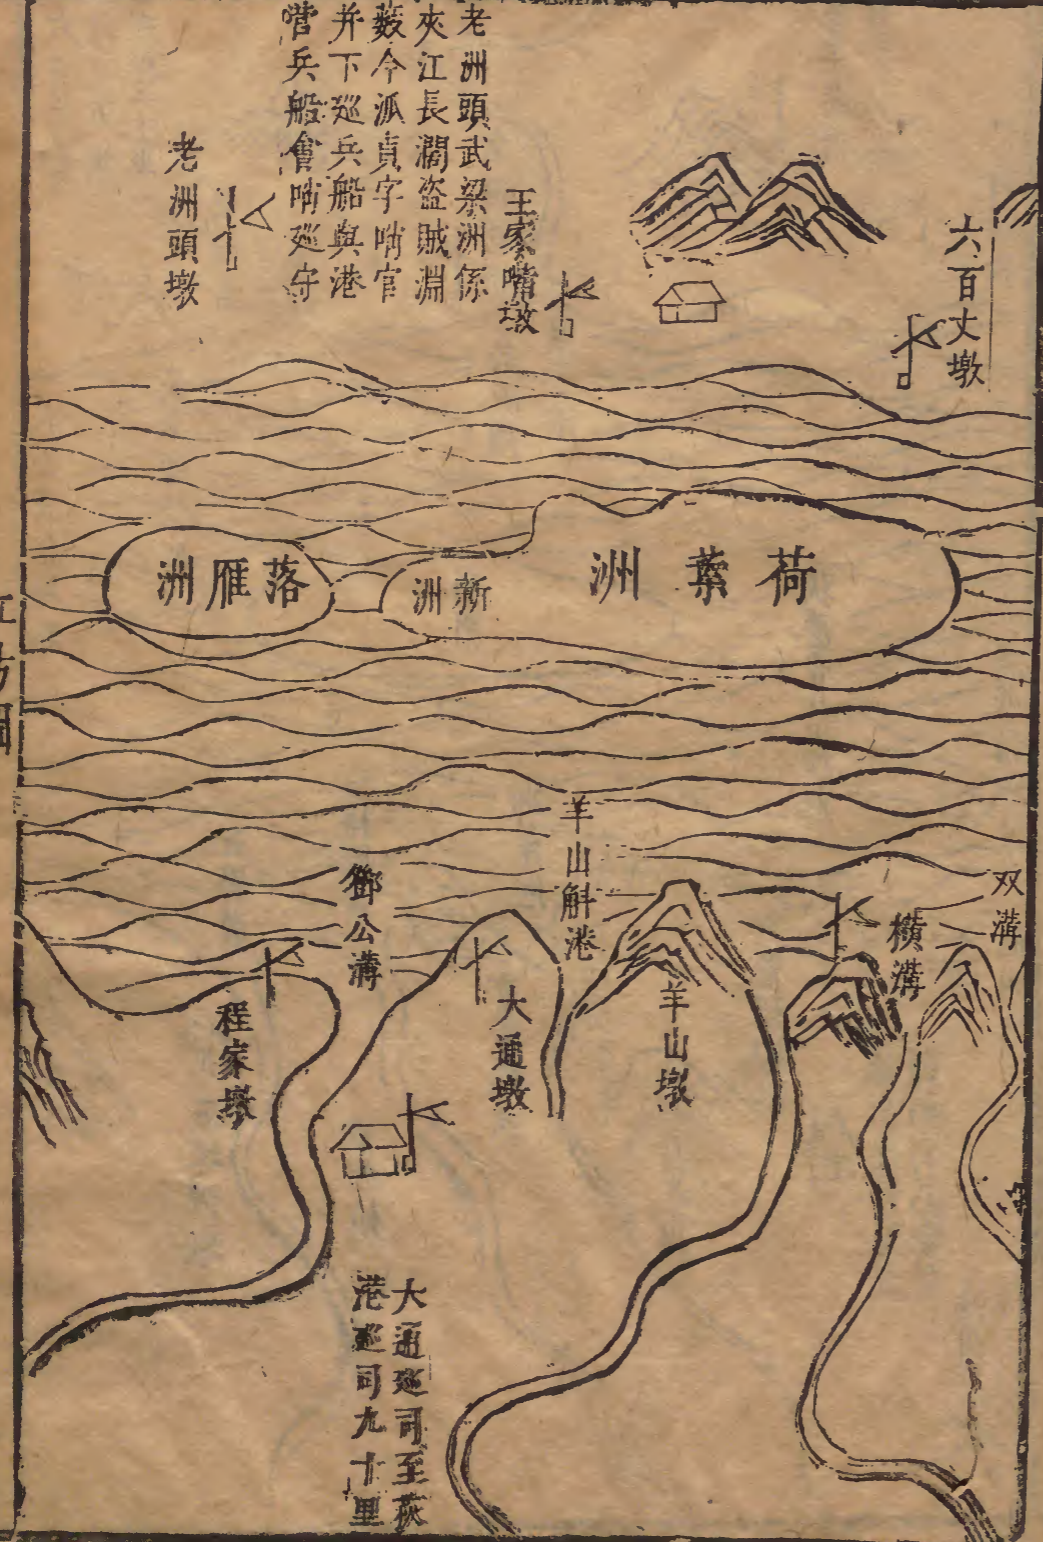 六百丈墩
王家嘴墩
老洲頭武梁洲係
夾江長濶盜賊淵
薮今派貞字哨官
并下廵兵船與港
營兵船會哨廵守
老洲頭墩
荷葉洲
新洲
落雁洲
双溝
橫溝
羊山墩
羊山斛港
大通墩
鄧公溝
程家墩
大通廵司至荻
港廵司九十里
江防圖